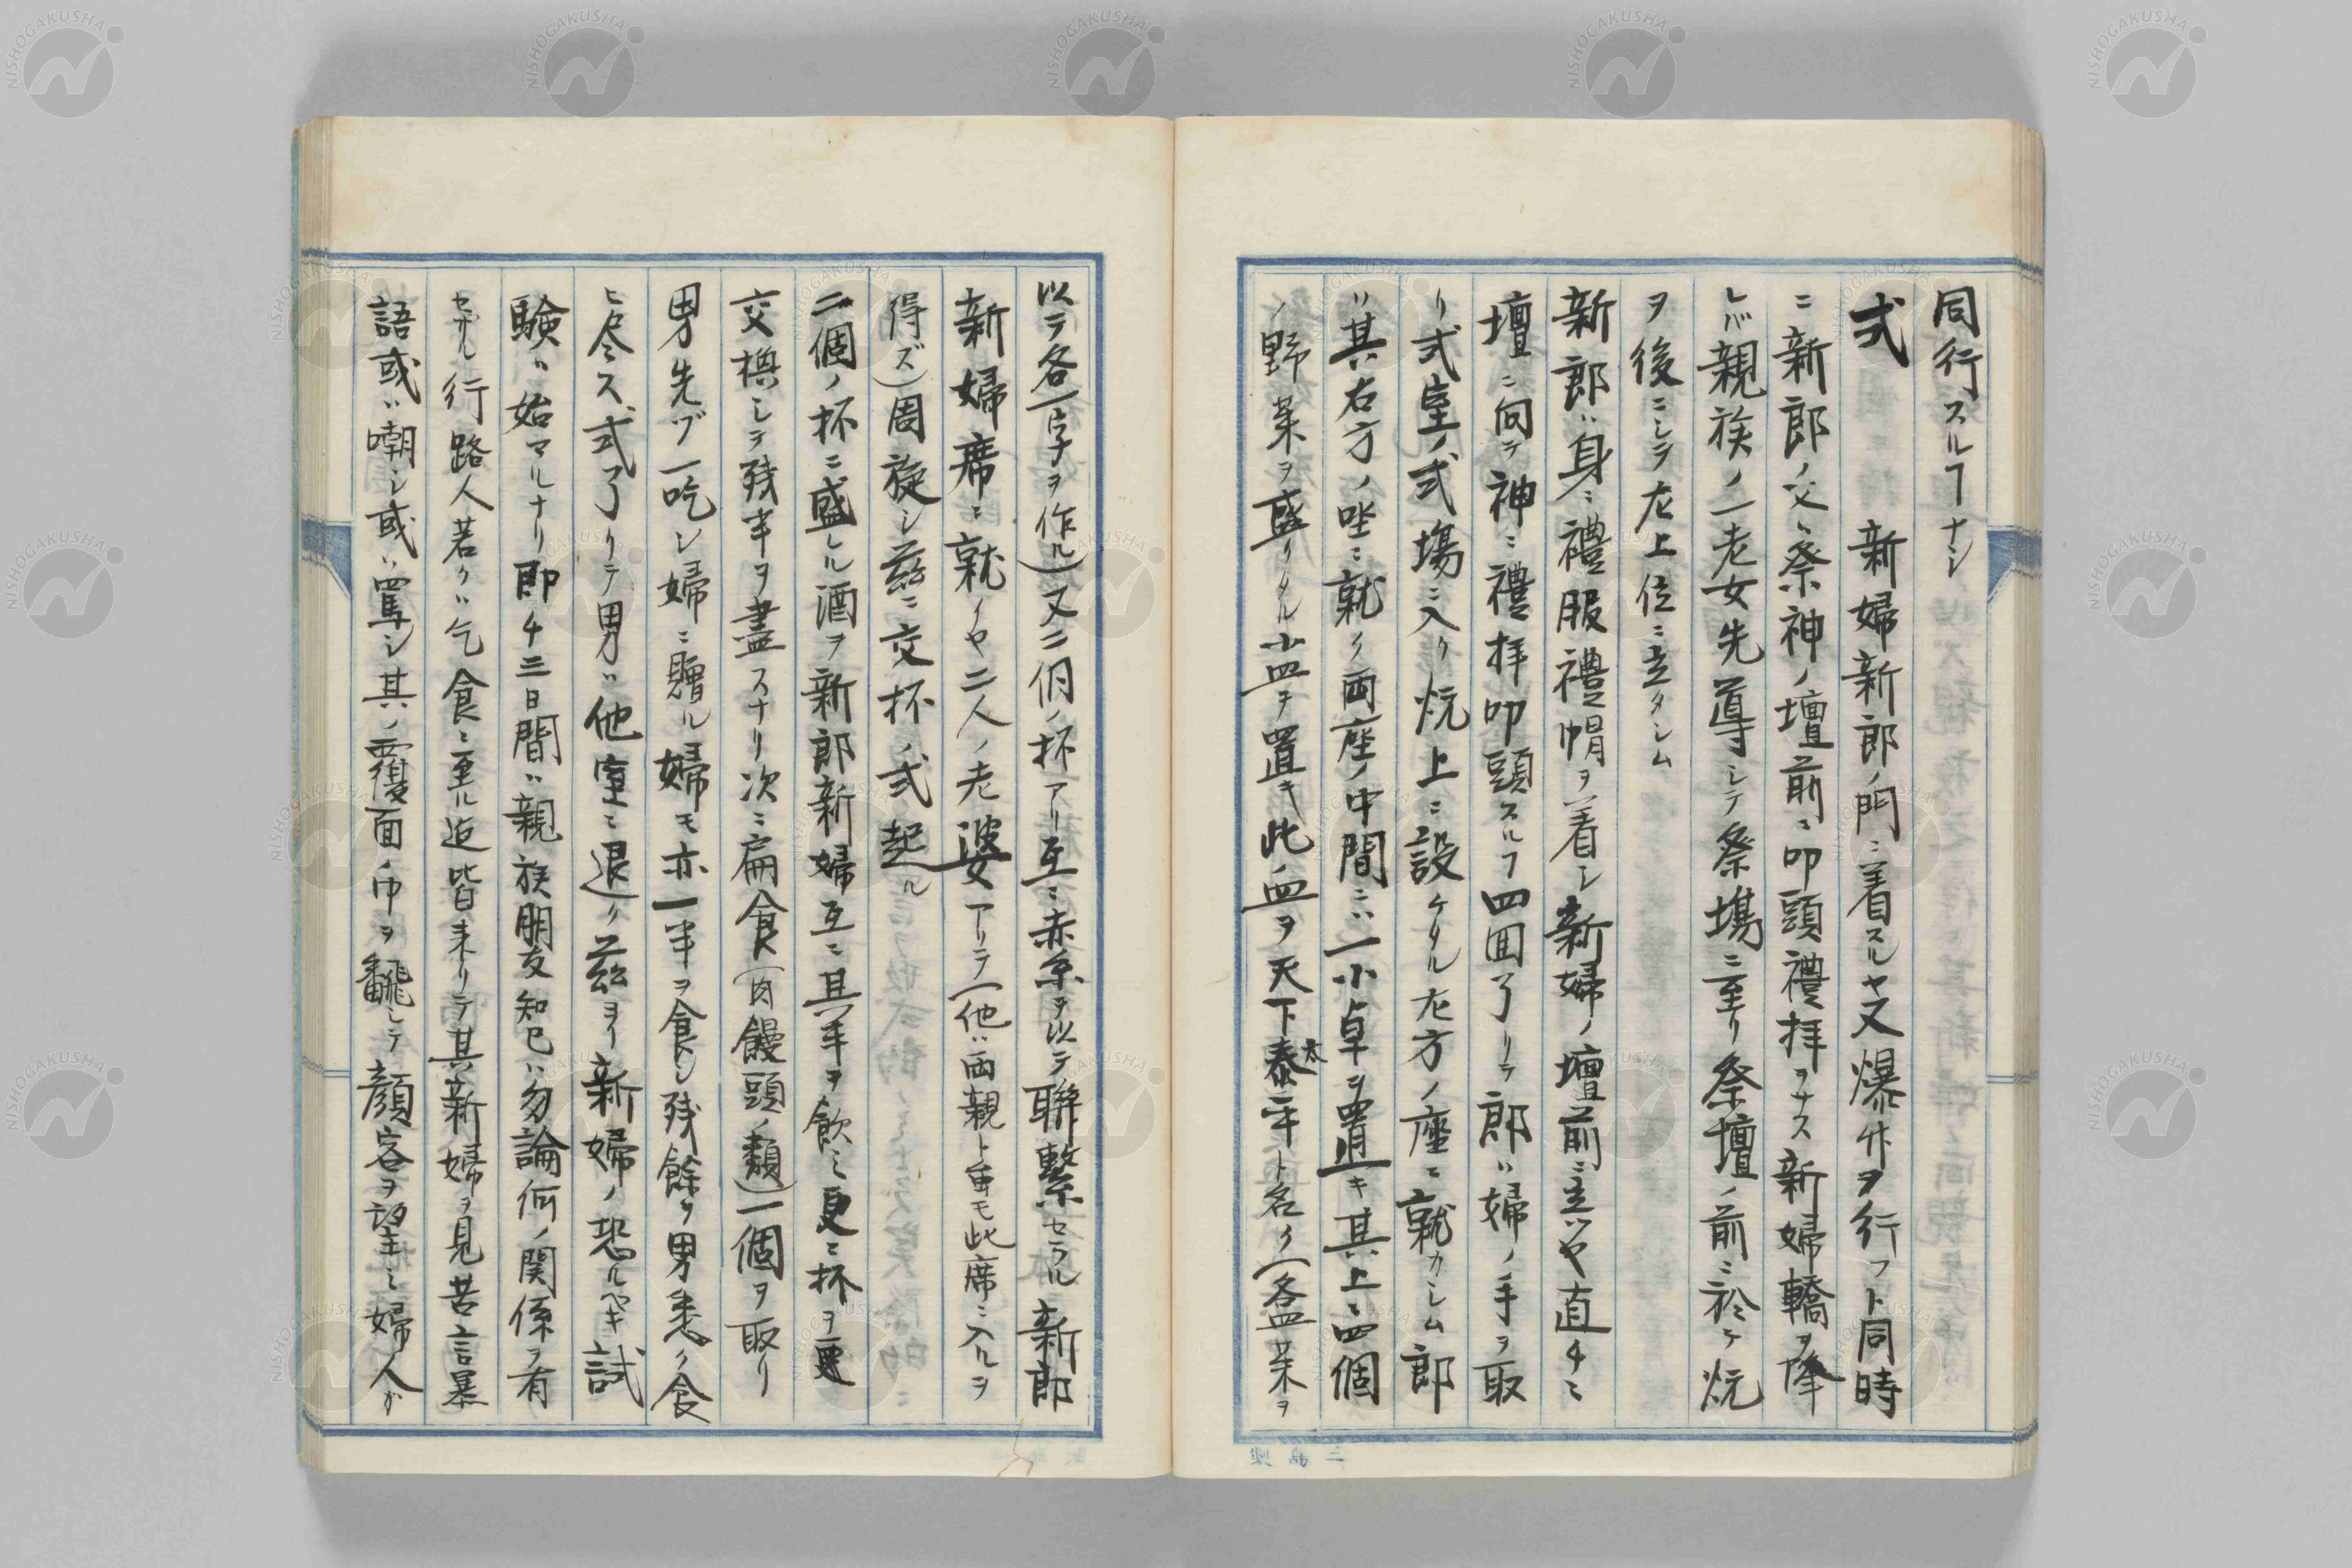 同行スルヿナシ
式　新婦新郎ノ門ニ着スルヤ又爆竹ヲ行フト同時
ニ新郎ノ父ハ祭神ノ壇前ニ叩頭禮拝ヲナス新婦轎ヲ降
レバ親族ノ一老女先導シテ祭場ニ至リ祭壇ノ前ニ於テ炕
ヲ後ニシテ左上位ニ立タシム
新郎ハ身ニ禮服禮帽ヲ着シ新婦ノ壇前ニ立ツヤ直チニ
壇ニ向テ神ニ禮拝叩頭スルヿ四回了リテ郎ハ婦ノ手ヲ取
リ式室ノ式場ニ入リ炕上ニ設ケタル左方ノ座ニ就カシム郎
ハ其右方ノ坐ニ就ク両座ノ中間ニハ一小卓ヲ置キ其上ニ四個
ノ野菜ヲ盛リタル小皿ヲ置キ此ノ皿ヲ天下泰平ト名ク（各皿菜ヲ
太
以テ各一字ヲ作ル）又二個ノ杯アリ互ニ赤糸ヲ以テ聯繋セラル新郎
新婦席ニ就クヤ二人ノ老婆アリテ（他ハ両親ト雖モ此席ニ入ルヲ
得ズ）周旋シ茲ニ交杯ノ式起ル
二個ノ杯ニ盛レル酒ヲ新郎新婦互ニ其半ヲ飲ミ更ニ杯ヲ
交換シテ残半ヲ盡スナリ次ニ扁食（肉饅頭ノ類）一個ヲ取リ
男先ヅ一吃シ婦ニ贈ル婦モ亦一半ヲ食シ残餘ヲ男悉ク食
ヒ尽ス式了リテ男ハ他室ニ退ク茲ヨリ新婦ノ恐ルベキ試
験ハ始マルナリ即チ三日間ハ親族朋友知己ハ勿論何ノ関係ヲ有
セザル行路人若クハ乞食ニ至ル迄皆来リテ其新婦ヲ見苦言暴
語或ハ嘲シ或ハ罵シ其ノ覆面ノ巾ヲ飜シテ顔容ヲ望ミ婦人ガ
NISHOGAKUSHA